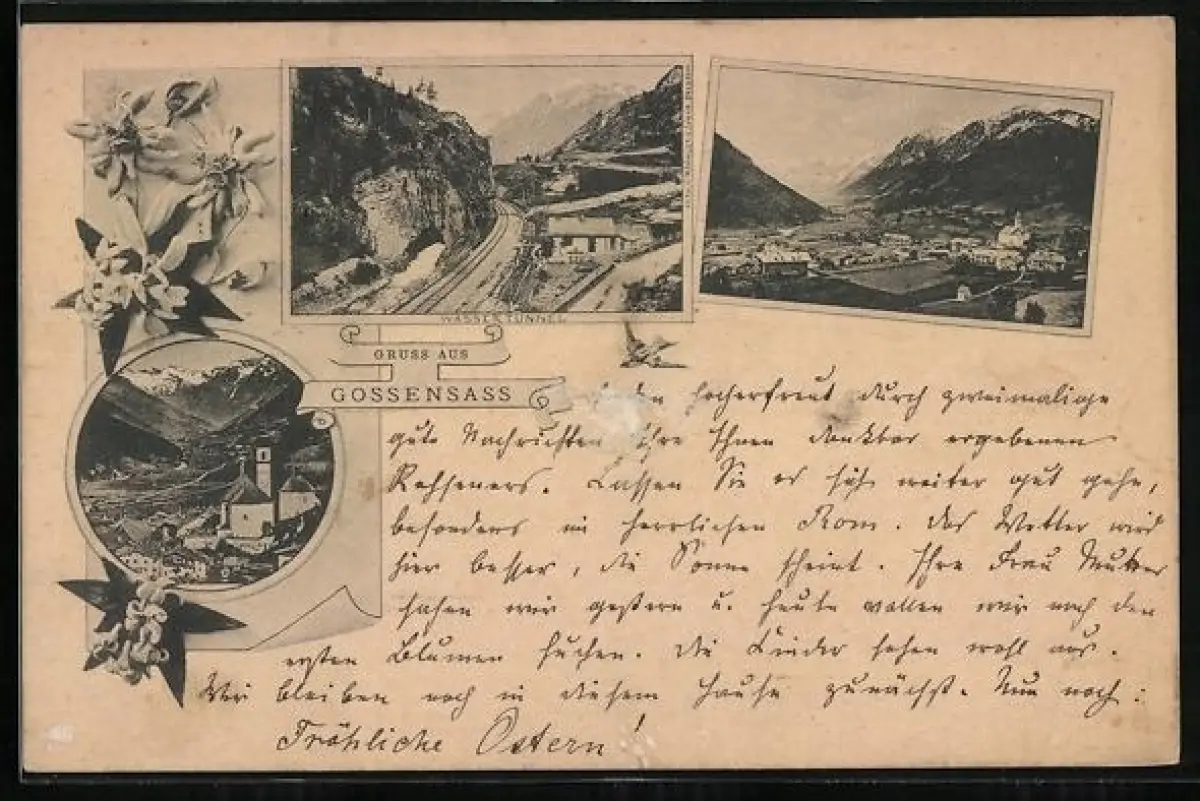 WASSERTUNNEL
GRUSS AUS
GOSSENSASS
hocherfreut durch zweimalige
gute Nachrichten Ihre Ihnen dankbar ergebenen
Rehseners. Lassen Sie es sich weiter gut gehn,
besonders im herrlichen Rom. Das Wetter wird
hier besser, die Sonne scheint. Ihre Frau Mutter
sahen wir gestern u. heute wollen wir nach den
ersten Blumen suchen. Die Kinder sehen wohl aus.
Wir bleiben noch in diesem Hause zunächst. Nun noch:
Fröhliche Ostern!